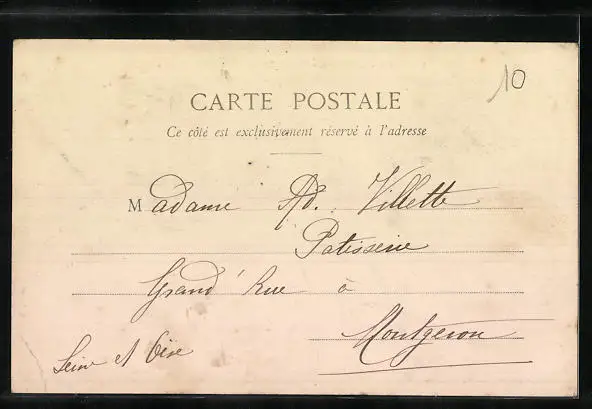 10
CARTE POSTALE
Ce côté est exclusivement réservé à l'adresse
Madame Ad. Villette
Patisserie
Grand' Rue à
Montgeron
Seine et Oise